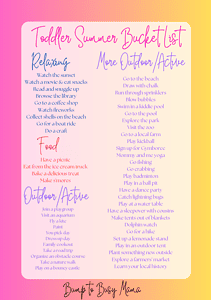 Toddler Summer Bucket List
Relaxing
Watch the sunset
Watch a movie & eat snacks
Read and snuggle up
Browse the library
Go to a coffee shop
Watch fireworks
Collect shells on the beach
Go for a boat ride
Do a craft
Food
Have a picnic
Eat from the ice cream truck
Bake a delicious treat
Make s'mores
Outdoor/Active
Join a playgroup
Visit an aquarium
Fly a kite
Paint
You pick day
Dress up day
Family cookout
Take a road trip
Organize an obstacle course
Take a nature walk
Play on a bouncy castle
More Outdoor/Active
Go to the beach
Draw with chalk
Run through sprinklers
Blow bubbles
Swim in a kiddie pool
Go to the pool
Explore the park
Visit the zoo
Go to a local farm
Play kickball
Sign up for Gymboree
Mommy and me yoga
Go fishing
Go crabbing
Play badminton
Play in a ball pit
Have a dance party
Catch lightning bugs
Play at a water table
Have a sleepover with cousins
Make tents out of blankets
Dolphin watch
Go for a hike
Set up a lemonade stand
Play in an outdoor tent
Plant something new outside
Explore a farmers market
Learn your local history
Bump to Busy Mama